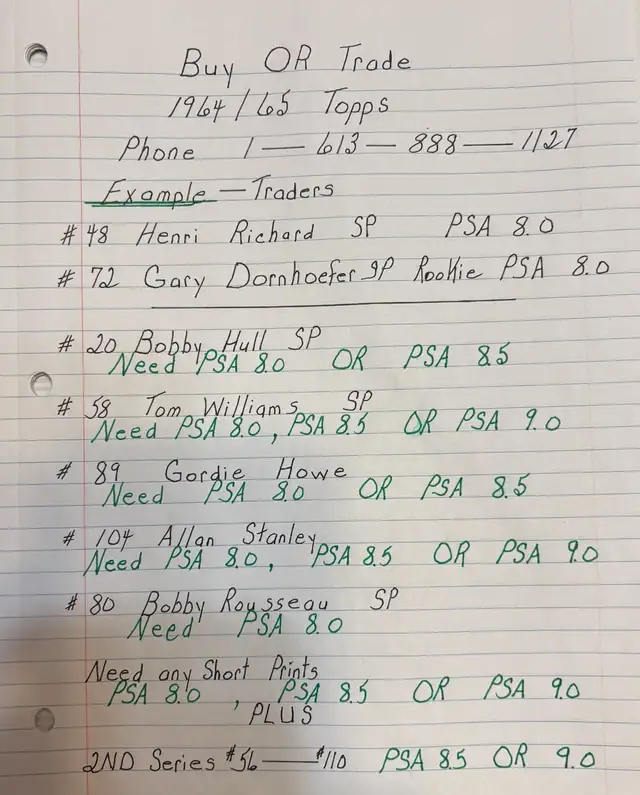 Buy OR Trade
1964/65 Topps
Phone 1 — 613 — 888 — 1127
Example — Traders
# 48 Henri Richard SP PSA 8.0
# 72 Gary Dornhoefer SP Rookie PSA 8.0
# 20 Bobby Hull SP
Need PSA 8.0 OR PSA 8.5
# 58 Tom Williams SP
Need PSA 8.0, PSA 8.5 OR PSA 9.0
# 89 Gordie Howe
Need PSA 8.0 OR PSA 8.5
# 104 Allan Stanley
Need PSA 8.0, PSA 8.5 OR PSA 9.0
# 80 Bobby Rousseau SP
Need PSA 8.0
Need any Short Prints
PSA 8.0, PSA 8.5 OR PSA 9.0
PLUS
2ND Series #56 — #110 PSA 8.5 OR 9.0